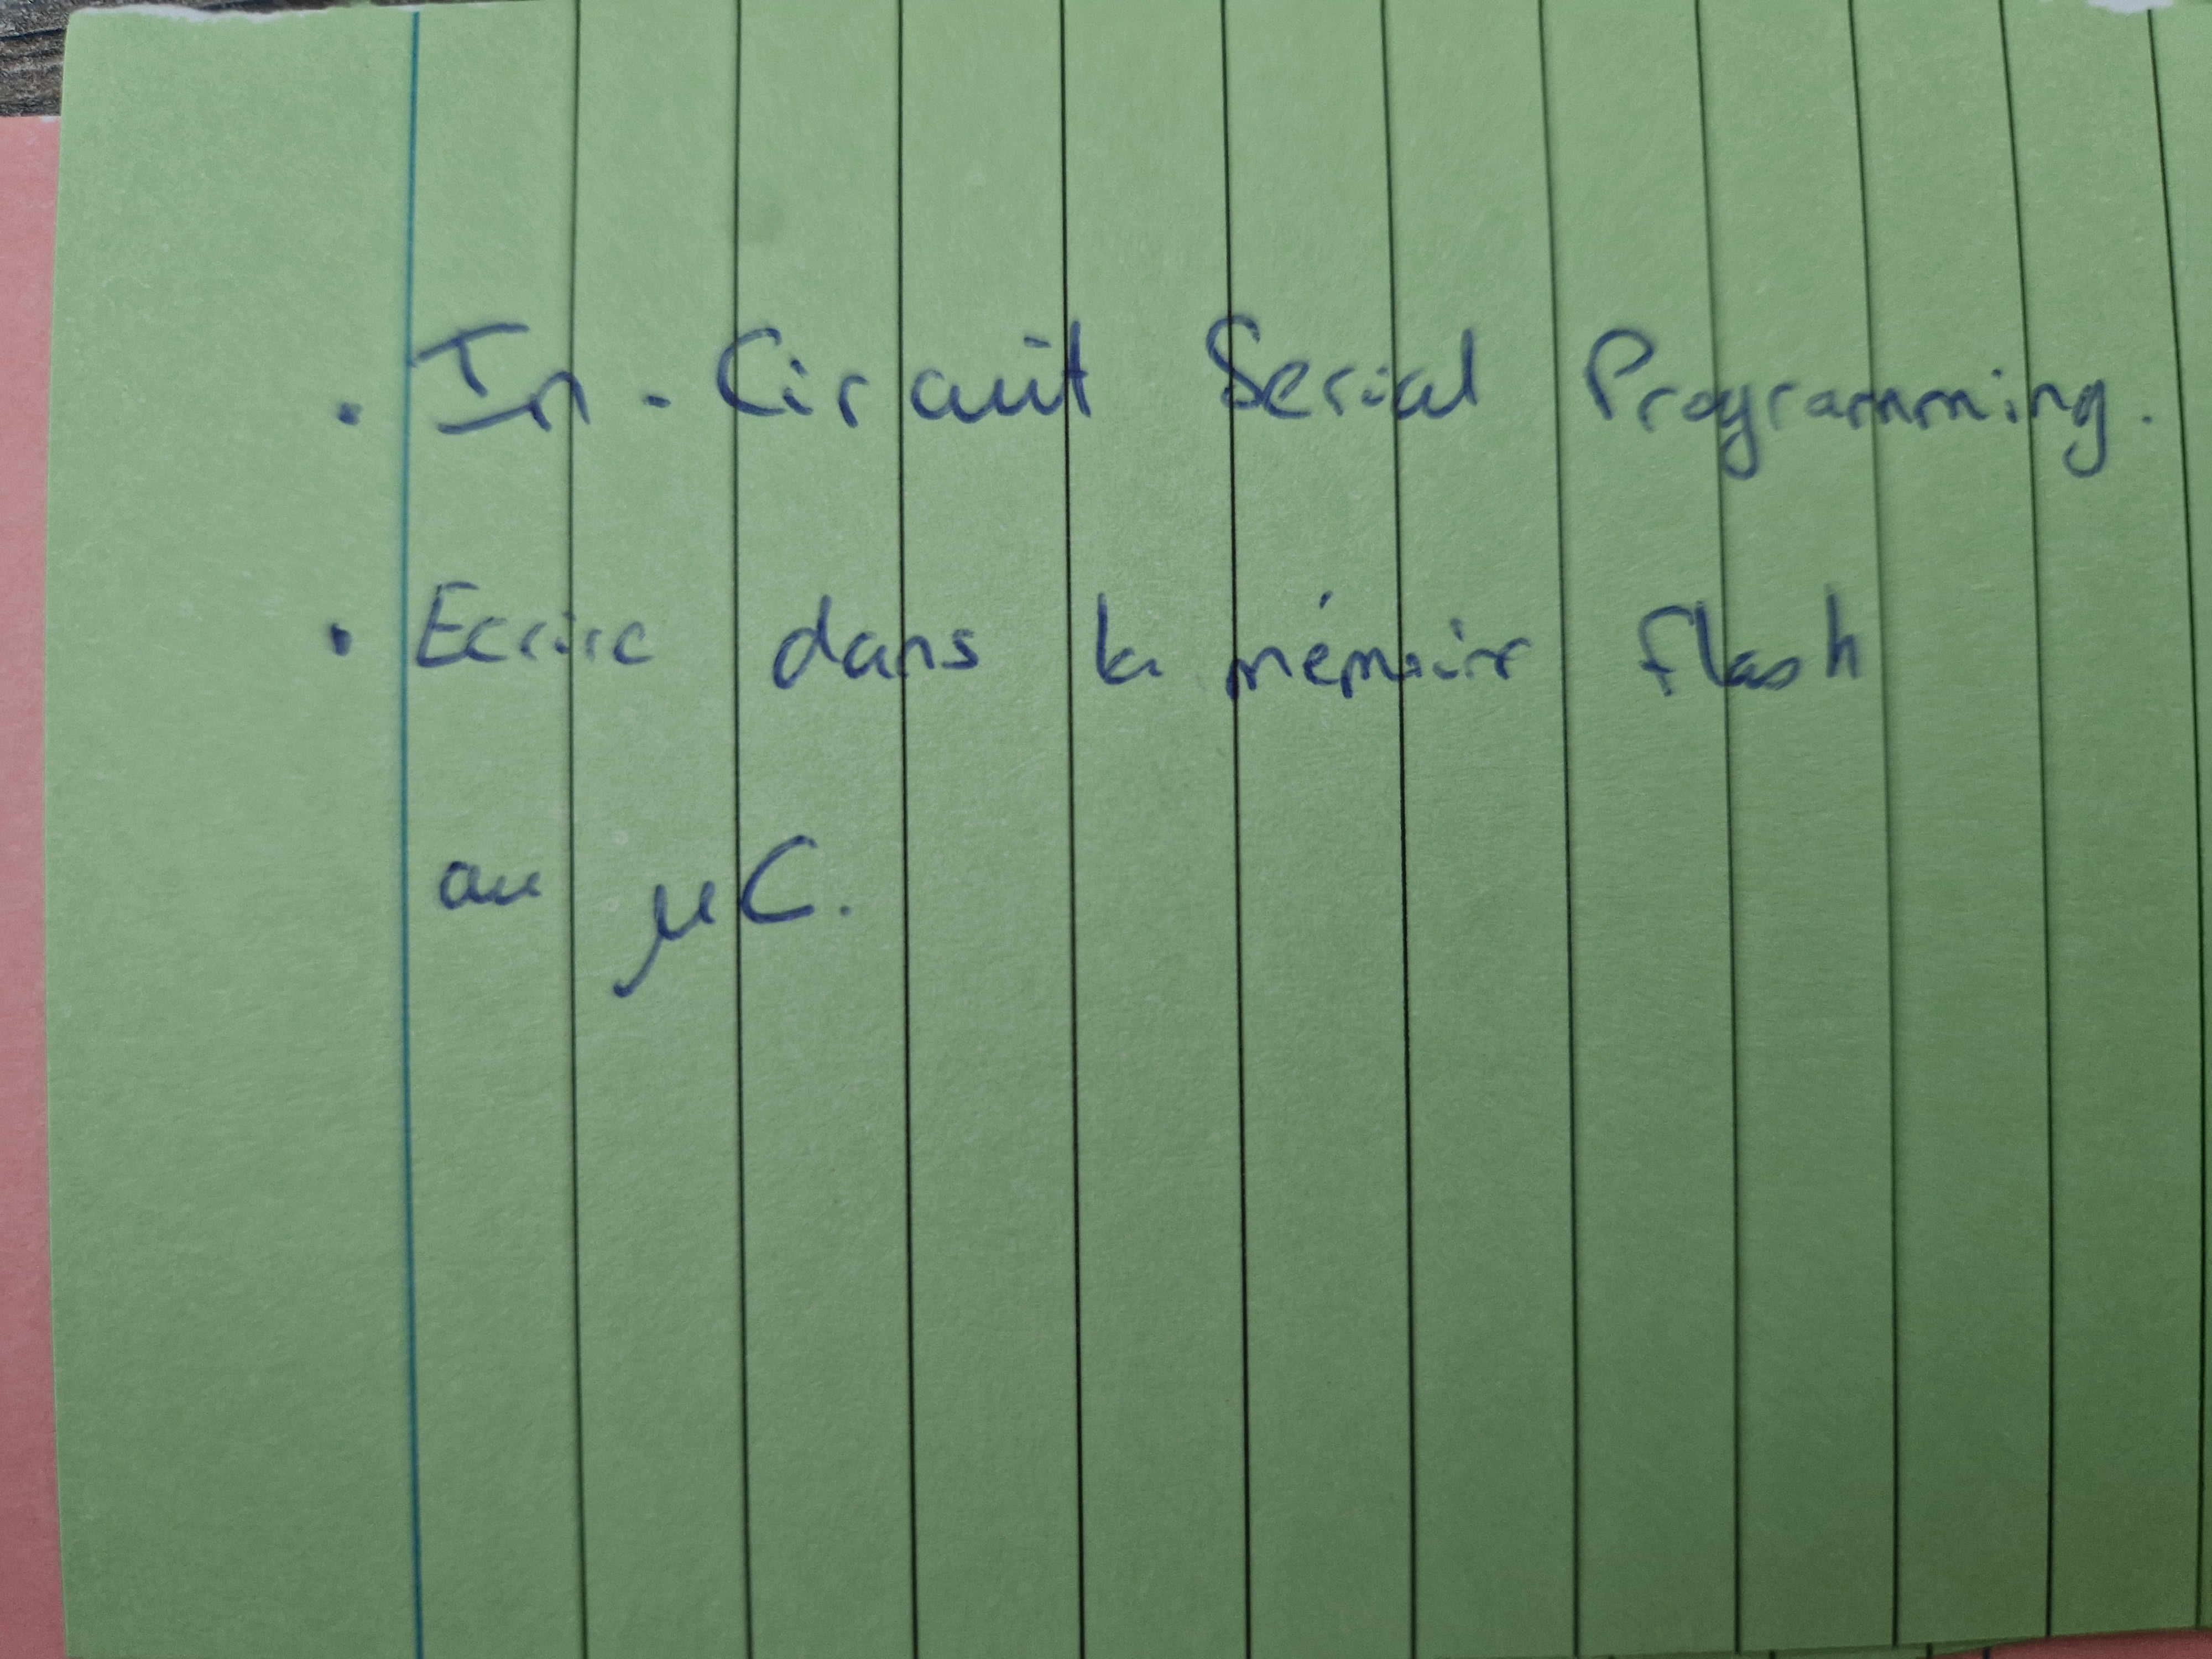 . In-Circuit Serial Programming.
. Ecrire dans la mémoire flash
au µC.